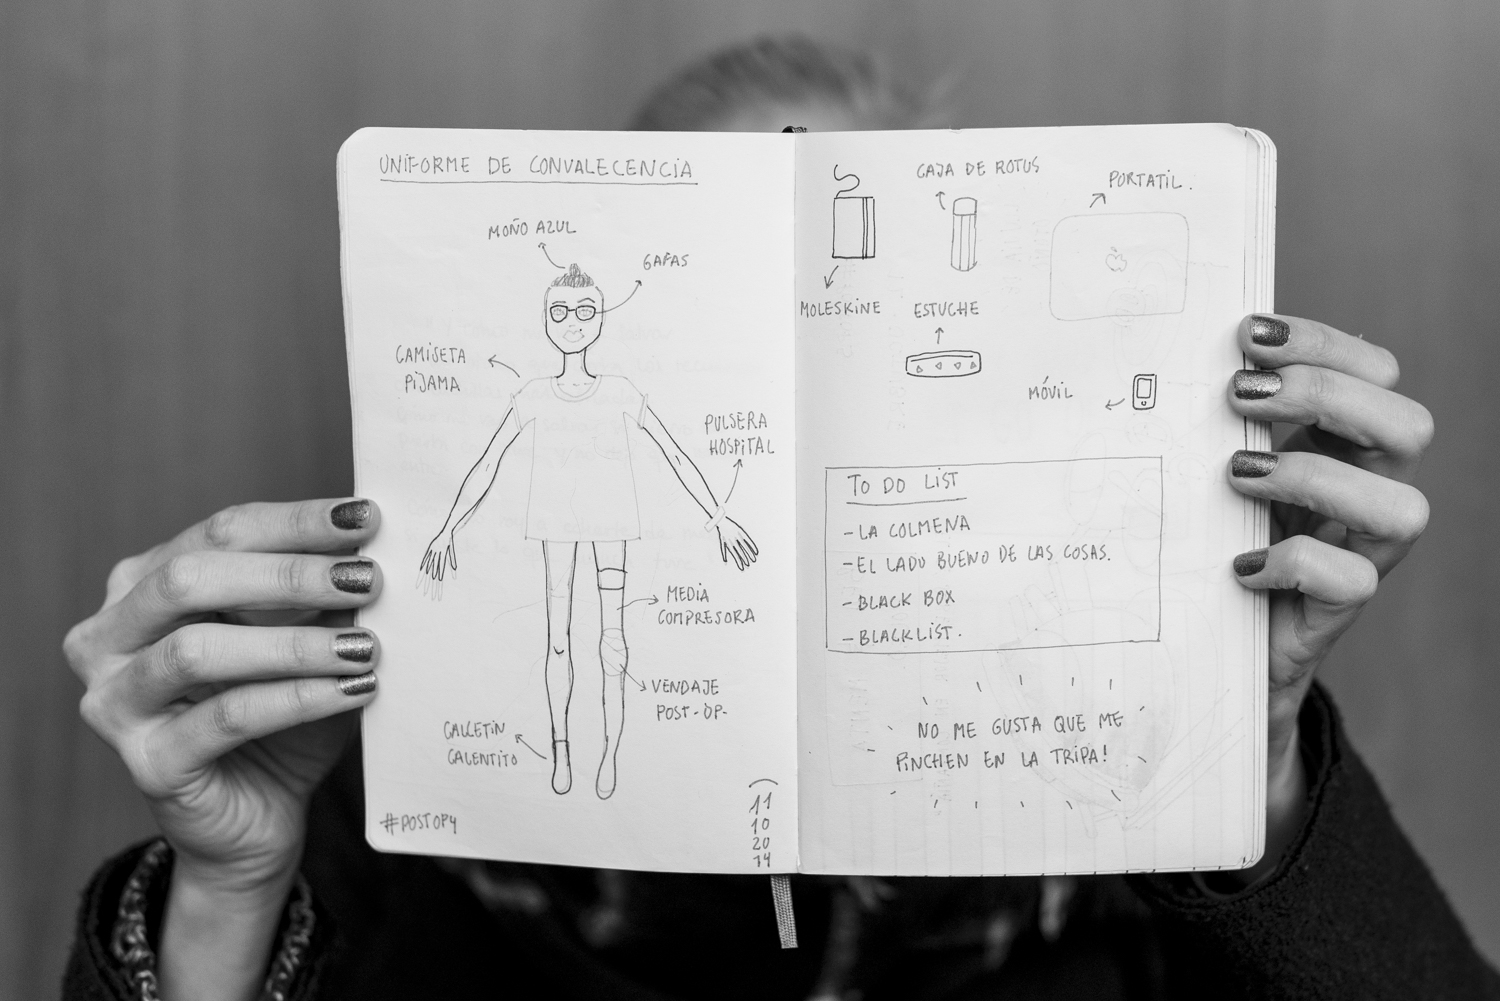 UNIFORME DE CONVALECENCIA
MOÑO AZUL
GAFAS
CAMISETA
PIJAMA
PULSERA
HOSPITAL
MEDIA
COMPRESORA
VENDAJE
POST-OP-
CALCETIN
CALENTITO
#POSTOP4
11
10
20
14
CAJA DE ROTUS
PORTATIL.
MOLESKINE
ESTUCHE
MÓVIL
TO DO LIST
-LA COLMENA
-EL LADO BUENO DE LAS COSAS.
-BLACK BOX
-BLACKLIST.
NO ME GUSTA QUE ME
PINCHEN EN LA TRIPA!